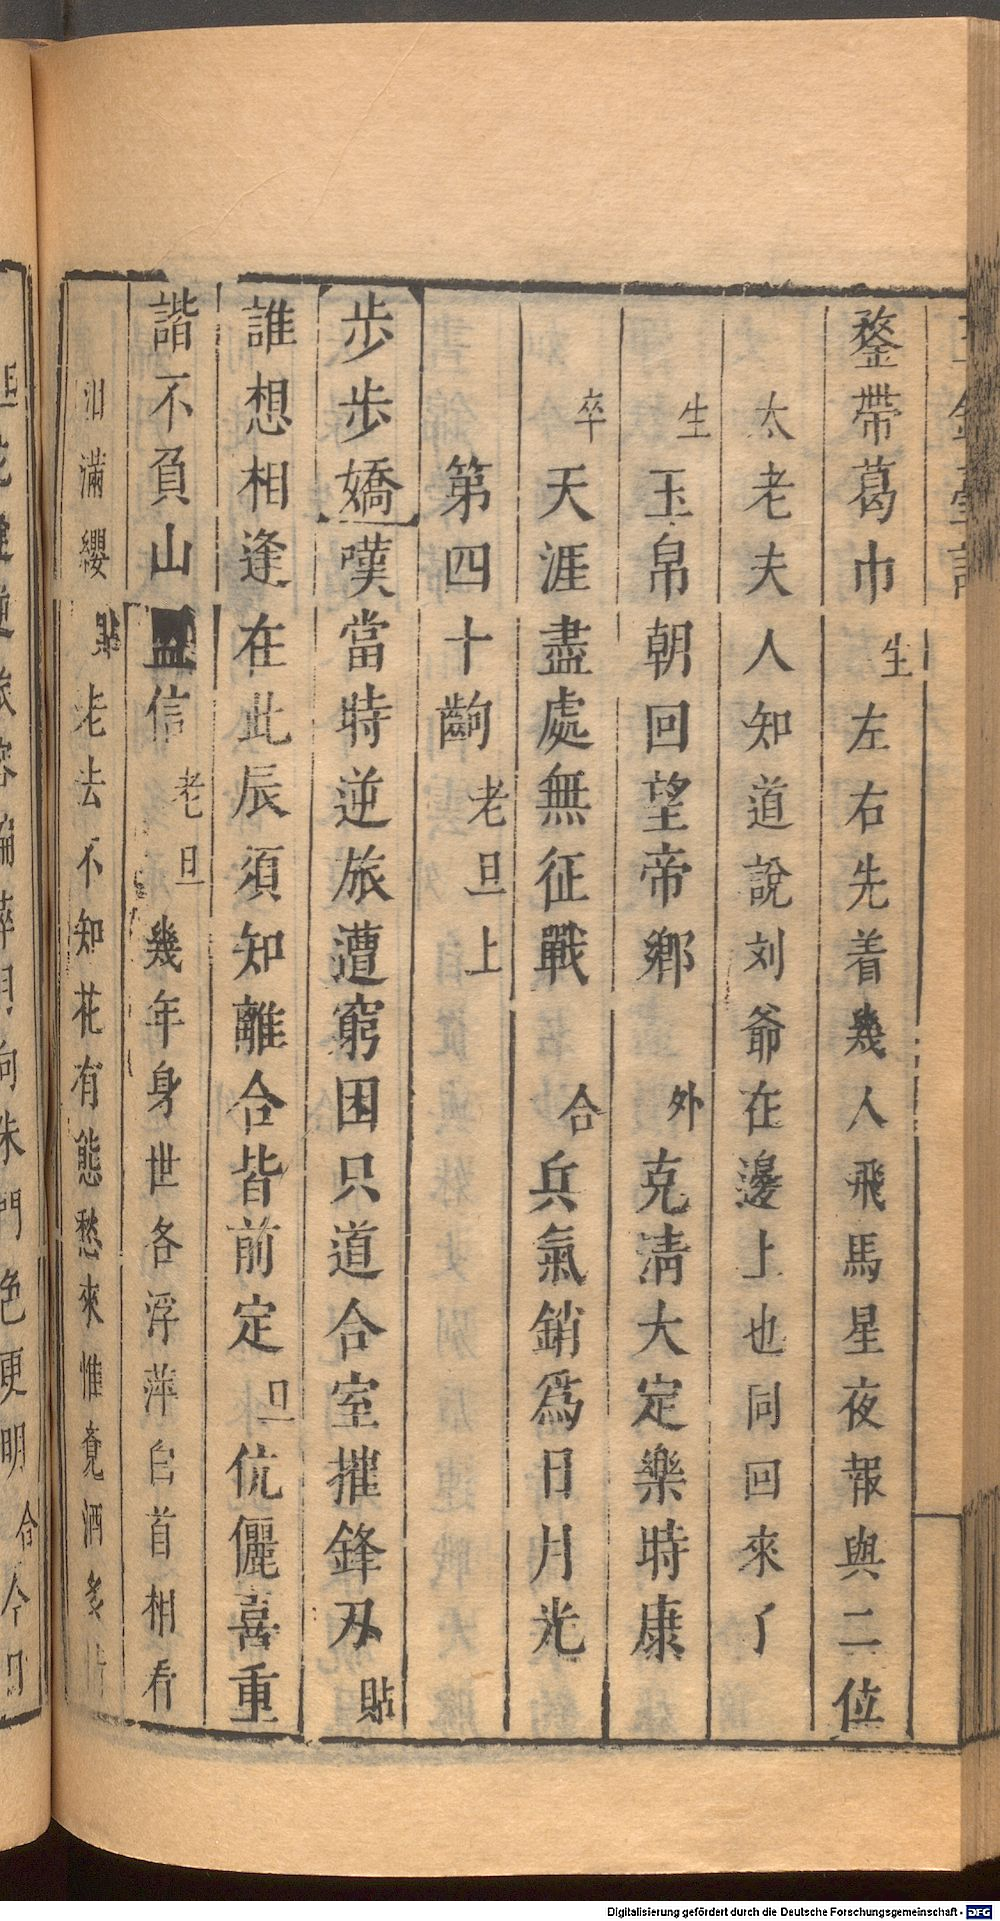 鍪帶葛巾生左右先着幾人飛馬星夜報與二位
太老夫人知道說刘爺在邊上也同回來了
生玉帛朝回望帝鄉外克清大定樂時康
卒天涯盡處無征戰合兵氣銷爲日月光
第四十齣老旦上
步步嬌嘆當時逆旅遭窮困只道合室摧鋒刃貼
誰想相逢在此辰須知離合皆前定旦伉儷喜重
諧不負山盟信老旦幾年身世各浮萍白首相看
泪滿纓貼老去不知花有態愁來惟覺酒多
色更明合今日
Digitalisierung gefördert durch die Deutsche Forschungsgemeinschaft - DFG